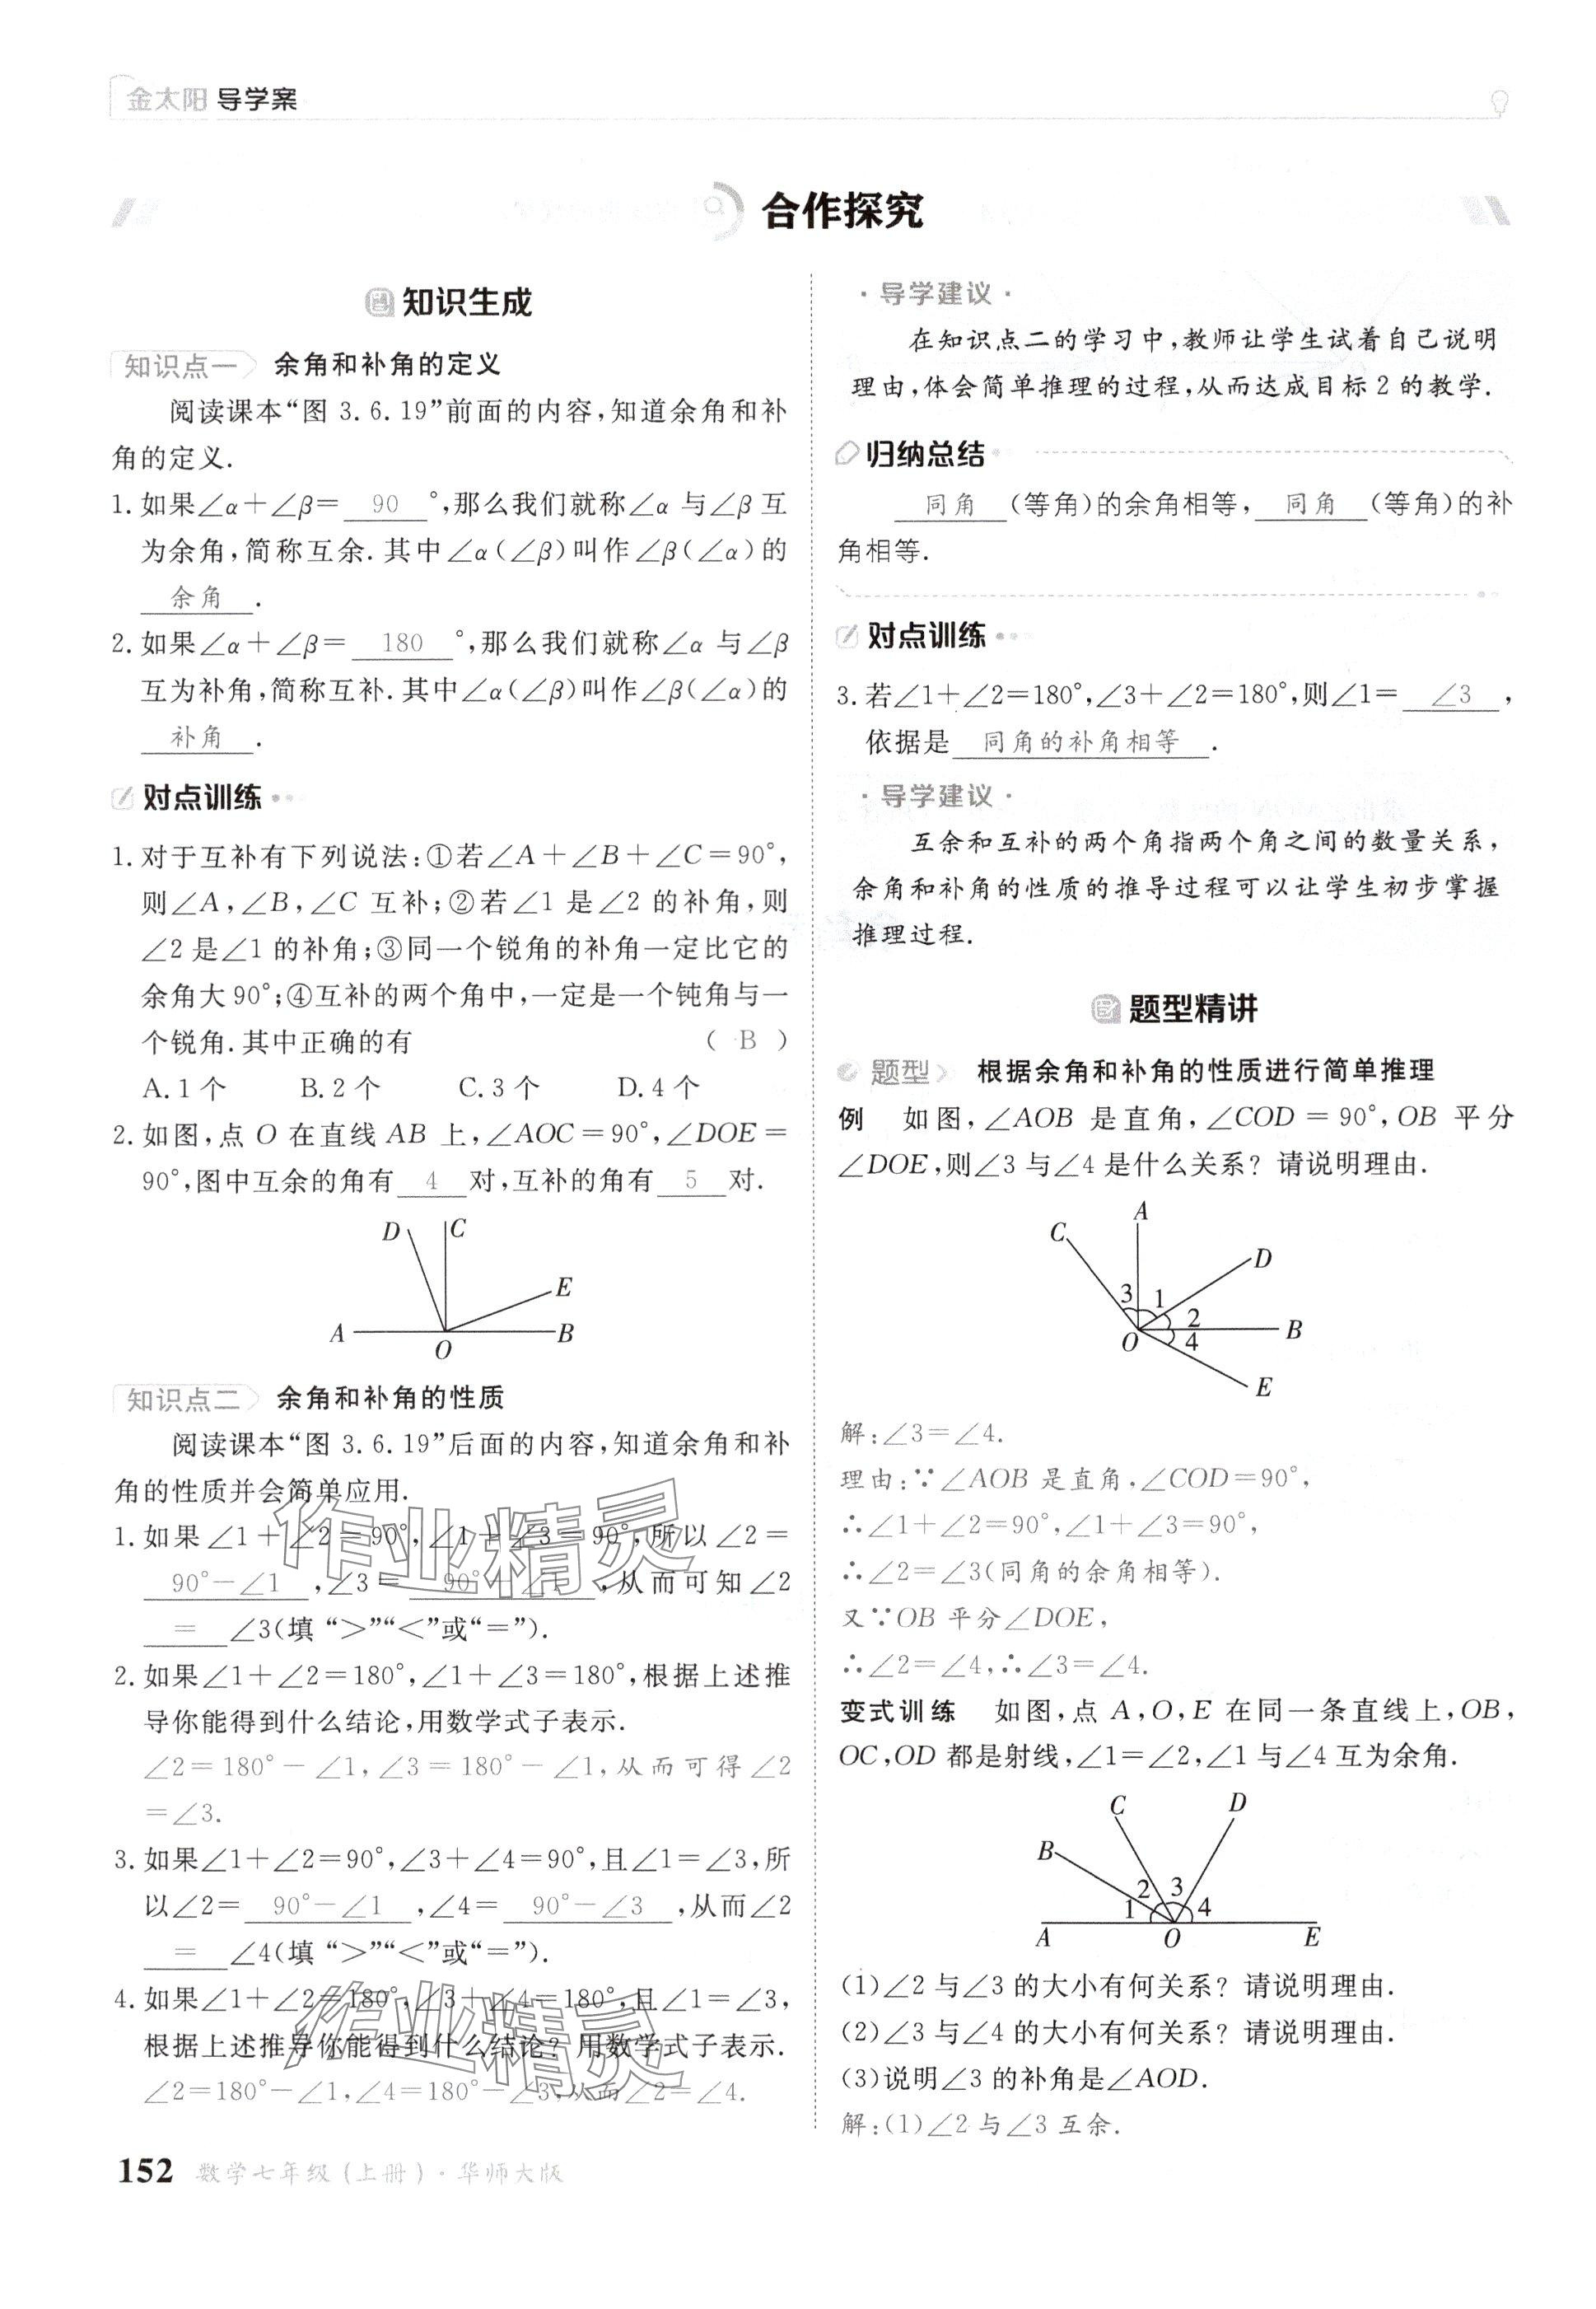 金太阳 导学案
合作探究
知识生成
知识点一 余角和补角的定义
阅读课本“图 3.6.19”前面的内容,知道余角和补
角的定义.
1. 如果∠α+∠β= 90 °,那么我们就称∠α 与∠β 互
为余角,简称互余.其中∠α(∠β)叫作∠β(∠α)的
余角 .
2. 如果∠α+∠β= 180 °,那么我们就称∠α 与∠β
互为补角,简称互补.其中∠α(∠β)叫作∠β(∠α)的
补角 .
对点训练
1. 对于互补有下列说法:①若∠A+∠B+∠C=90°,
则∠A,∠B,∠C 互补;②若∠1 是∠2 的补角,则
∠2 是∠1 的补角;③同一个锐角的补角一定比它的
余角大 90°;④互补的两个角中,一定是一个钝角与一
个锐角.其中正确的有 ( B )
A. 1 个 B. 2 个 C. 3 个 D. 4 个
2. 如图,点 O 在直线 AB 上,∠AOC=90°,∠DOE=
90°,图中互余的角有 4 对,互补的角有 5 对.
D C
E
A O B
知识点二 余角和补角的性质
阅读课本“图 3.6.19”后面的内容,知道余角和补
角的性质并会简单应用.
1. 如果∠1+∠2=90°,∠1+∠3=90°,所以∠2=
90°-∠1 ,∠3= 90°-∠1 ,从而可知∠2
= ∠3(填“>”“<”或“=”).
2. 如果∠1+∠2=180°,∠1+∠3=180°,根据上述推
导你能得到什么结论,用数学式子表示.
∠2=180°-∠1,∠3=180°-∠1,从而可得∠2
=∠3.
3. 如果∠1+∠2=90°,∠3+∠4=90°,且∠1=∠3,所
以∠2= 90°-∠1 ,∠4= 90°-∠3 ,从而∠2
= ∠4(填“>”“<”或“=”).
4. 如果∠1+∠2=180°,∠3+∠4=180°,且∠1=∠3,
根据上述推导你能得到什么结论?用数学式子表示.
∠2=180°-∠1,∠4=180°-∠3,从而∠2=∠4.
作业精灵
作业精灵
152 数学七年级(上册)·华师大版
·导学建议·
在知识点二的学习中,教师让学生试着自己说明
理由,体会简单推理的过程,从而达成目标 2 的教学.
归纳总结
同角 (等角)的余角相等, 同角 (等角)的补
角相等.
对点训练
3. 若∠1+∠2=180°,∠3+∠2=180°,则∠1= ∠3 ,
依据是 同角的补角相等 .
·导学建议·
互余和互补的两个角指两个角之间的数量关系,
余角和补角的性质的推导过程可以让学生初步掌握
推理过程.
题型精讲
题型 根据余角和补角的性质进行简单推理
例 如图,∠AOB 是直角,∠COD=90°,OB 平分
∠DOE,则∠3 与∠4 是什么关系?请说明理由.
A
C D
3 1 2
O 4 B
E
解:∠3=∠4.
理由:∵∠AOB 是直角,∠COD=90°,
∴∠1+∠2=90°,∠1+∠3=90°,
∴∠2=∠3(同角的余角相等).
又∵OB 平分∠DOE,
∴∠2=∠4,∴∠3=∠4.
变式训练 如图,点 A,O,E 在同一条直线上,OB,
OC,OD 都是射线,∠1=∠2,∠1 与∠4 互为余角.
C D
B
2 3
1 4
A O E
(1)∠2 与∠3 的大小有何关系?请说明理由.
(2)∠3 与∠4 的大小有何关系?请说明理由.
(3)说明∠3 的补角是∠AOD.
解:(1)∠2 与∠3 互余.